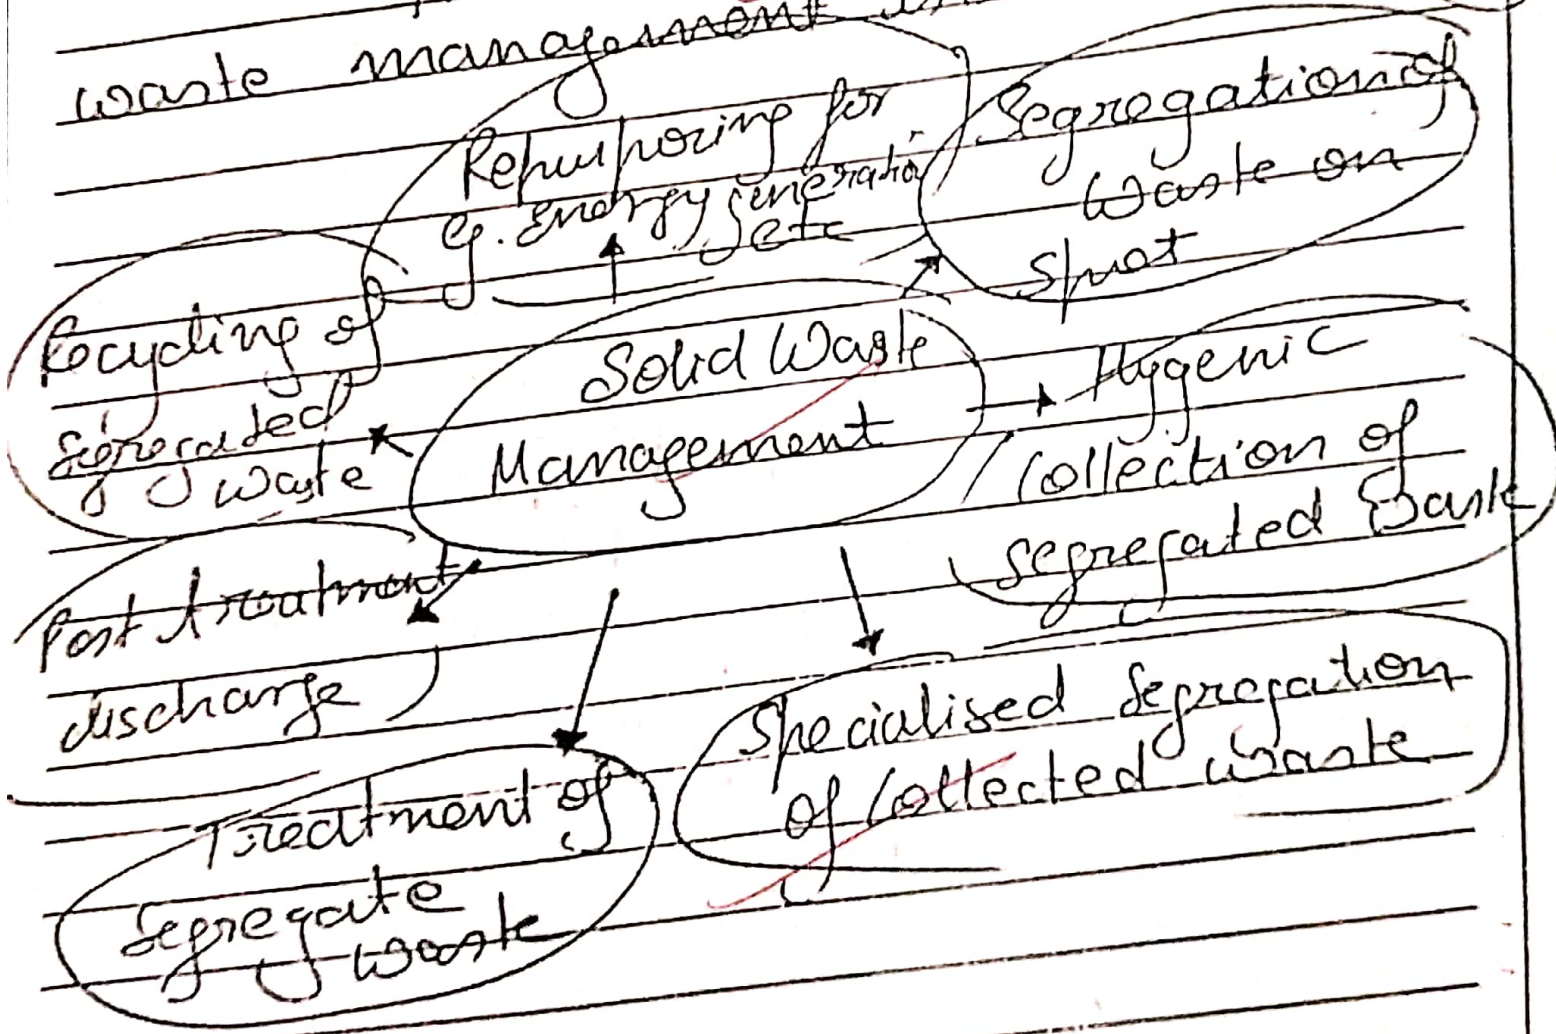 waste management
Repurposing for
eg. Energy generation
etc
Segregation of
Waste on
Spot
Recycling of
Segregated
waste
Solid Waste
Management
Hygenic
Collection of
segregated Waste
Post treatment
discharge
Specialised Segregation
of Collected waste
Treatment of
Segregate
waste